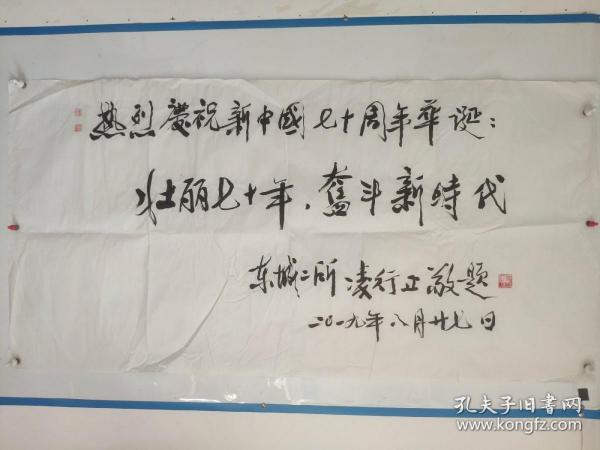 热烈慶祝新中國七十周年华诞：
壮丽七十年，奮斗新時代
东城二所 凌行正敬题
二〇一九年八月廿七日
孔夫子旧书网
www.kongfz.com